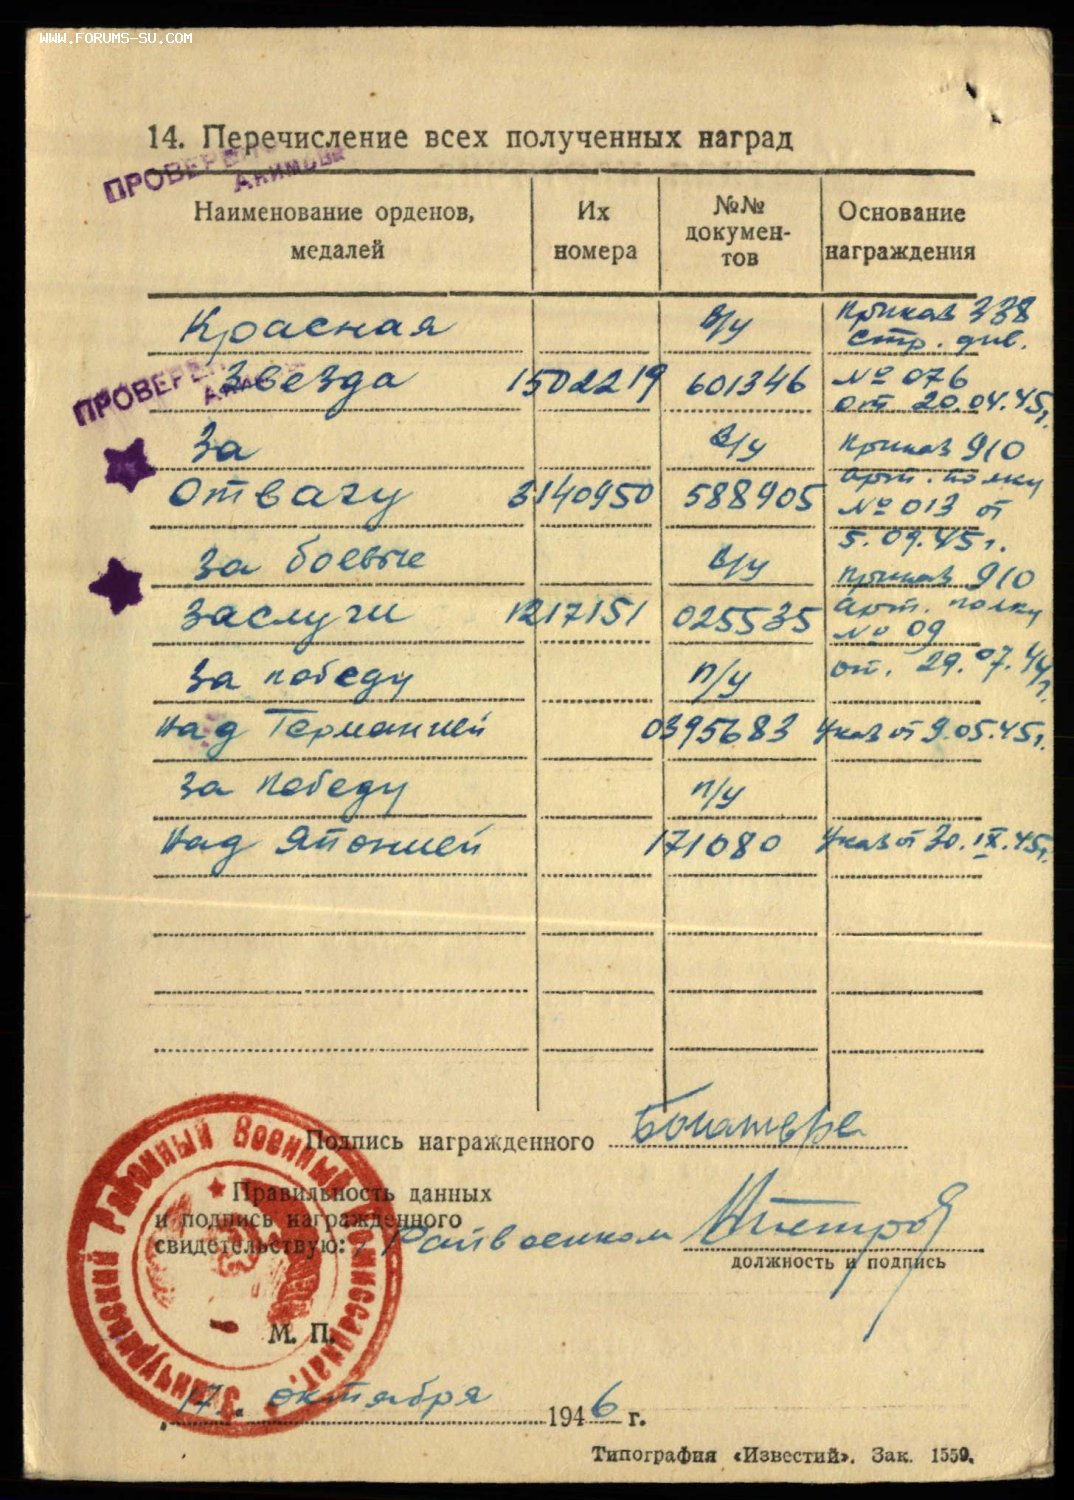 WWW.FORUMS-SU.COM
14. Перечисление всех полученных наград
ПРОВЕРЕНО
Акимова
Наименование орденов, медалей
Их номера
№№ докумен-тов
Основание награждения
Красная в/у Приказ 338
стр. див.
ПРОВЕРЕНО
Звезда 1502219 601346 № 076
от 20.04.45г.
За в/у Приказ 910
Отвагу 3140950 588905 арт. полку
№ 013 от
5.09.45г.
За боевые в/у Приказ 910
Заслуги 1217151 025535 арт. полку
№ 09
За победу п/у от. 29.07.44г.
над Германией 0395683 Указ от 9.05.45г.
За победу п/у
над Японией 171080 Указ от 30.IX.45г.
Подпись награжденного
Правильность данных
и подпись награжденного
свидетельствую: Райвоенком
должность и подпись
М. П.
Районный Военный Комиссариат
„17“ октября 1946 г.
Типография «Известий». Зак. 1559.